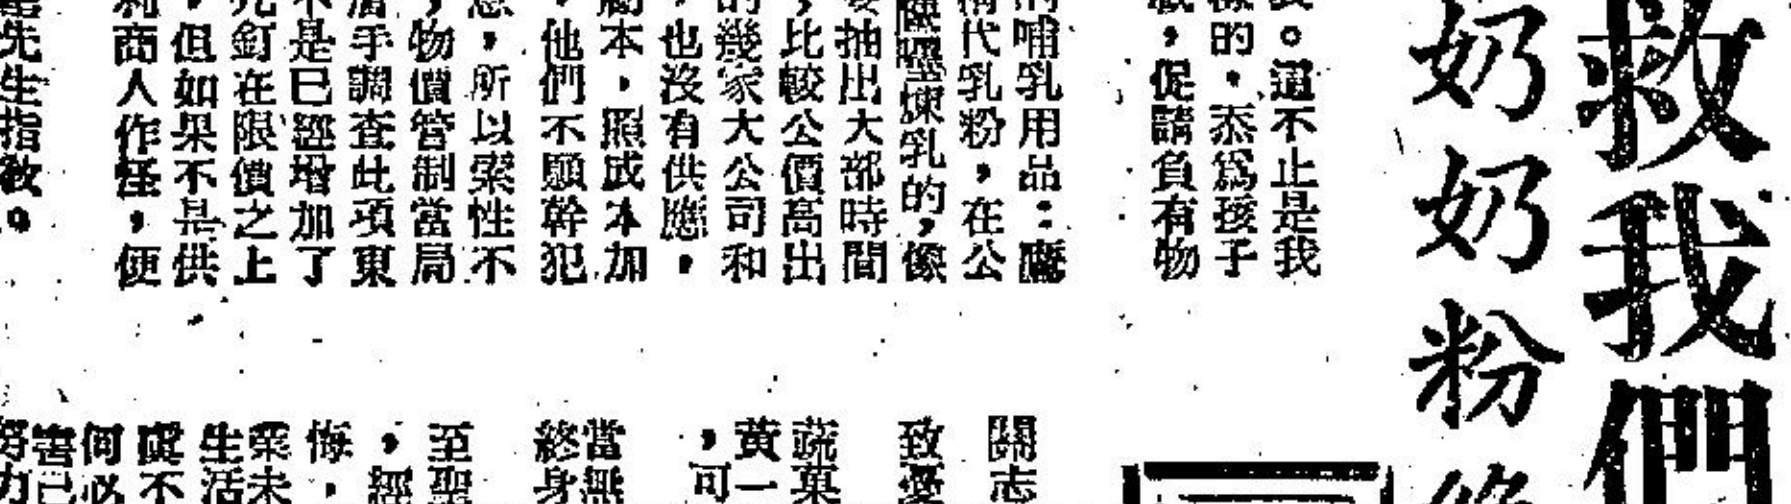 救我們
奶奶粉
是我。這不止是我
樣的，忝爲孩子
，促請負有物
哺乳用品：鷹
代乳粉，在公
煉乳的，像
抽出大部時間
，比較公價高出
的幾家大公司和
，也沒有供應，
本，照成本加
，他們不願幹犯
，所以索性不
，物價管制當局
手調查此項東
不是已經增加了
釘在限價之上
，但如果不是供
商人作怪，便
先生指教。
關志
致憂
蔬菓
黃一
，可
當無
終身
至聖
，經
悔，
栗未
生活
處不
何必
害己
努力